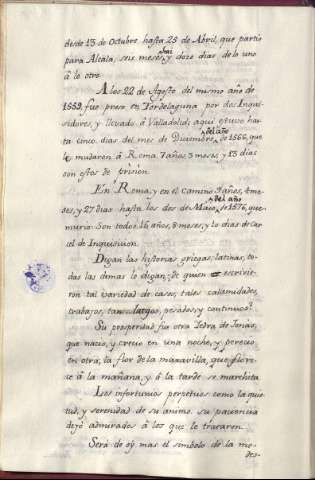 desde 13 de Octubre hasta 25 de Abril, que partió
para Alcala, seis meses, y doze dias de lo uno
à lo otro
A los 22 de Agosto del mismo año de
1559. fue preso en Tordelaguna por dos Inqui-
sidores, y llevado à Valladolid; aqui estuvo has-
ta cinco dias del mes de Diciembre del año de 1566, que
le mudaron à Roma. 7 años 3 meses, y 13 dias
son estos de prision.
En Roma, y en el camino 9 años, 4 me-
ses, y 27 dias hasta los dos de Maio del año de 1576, que
murio. Son todos 16 años, 8 meses, y 10 dias de car-
cel de Inquisicion.
Digan las historias griegas, latinas, to-
das las demas lo digan; de quien escrivie-
ron tal variedad de casos, tales calamidades,
trabajos, tan largos, pesados, y continuos?
Su prosperidad fue otra Yedra de Jonas,
que nacio, y crecio en una noche, y perecio
en otra; la flor de la maravilla, que flore-
ce à la mañana, y à la tarde se marchita
Los infortunios perpetuos como la quie-
tud, y serenidad de su animo. su paciencia
dejò admirados à los que le trataron.
Serà de oy mas el simbolo de la mo-
des-